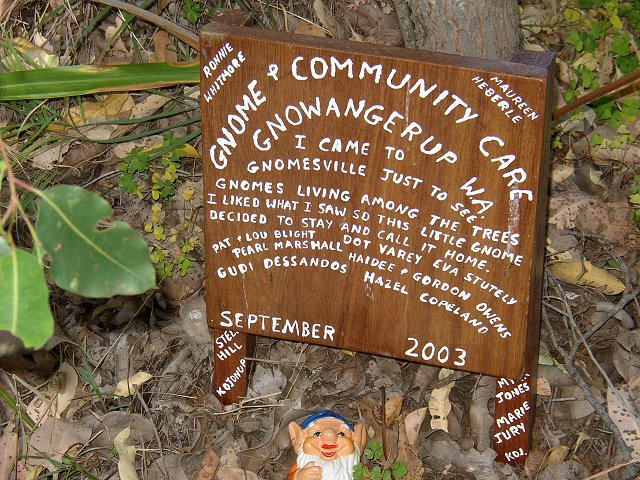 RONNIE
WHITMORE
MAUREEN
HEBERLE
GNOME & COMMUNITY CARE
GNOWANGERUP W.A.
I CAME TO
GNOMESVILLE JUST TO SEE,
GNOMES LIVING AMONG THE TREES
I LIKED WHAT I SAW SO THIS LITTLE GNOME
DECIDED TO STAY AND CALL IT HOME.
PAT & LOU BLIGHT DOT VAREY EVA STUTELY
PEARL MARSHALL HAIDEE & GORDON OWENS
GUDI DESSANDOS HAZEL COPELAND
SEPTEMBER 2003
HILL
KOJONUP
JONES
MARIE
JURY
KOJ.